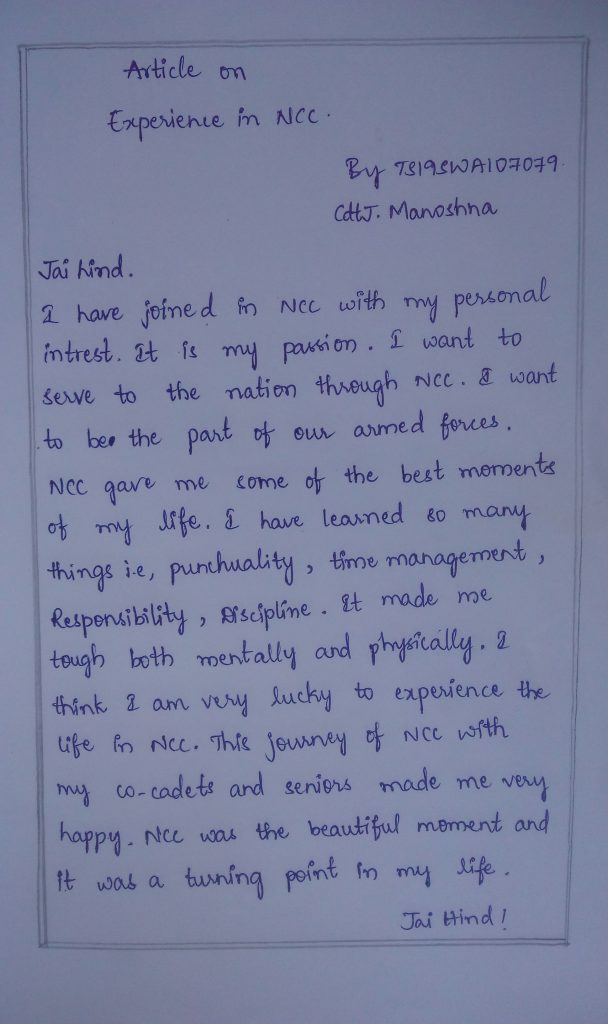 Article on
Experience in NCC.
By TS19SWA107079.
CdtJ. Manoshna
Jai hind.
I have joined in NCC with my personal
intrest. It is my passion. I want to
serve to the nation through NCC. I want
to be the part of our armed forces.
NCC gave me some of the best moments
of my life. I have learned so many
things i.e, punchuality, time management,
Responsibility, Discipline. It made me
tough both mentally and physically. I
think I am very lucky to experience the
life in NCC. This journey of NCC with
my co-cadets and seniors made me very
happy. NCC was the beautiful moment and
it was a turning point in my life.
Jai Hind!